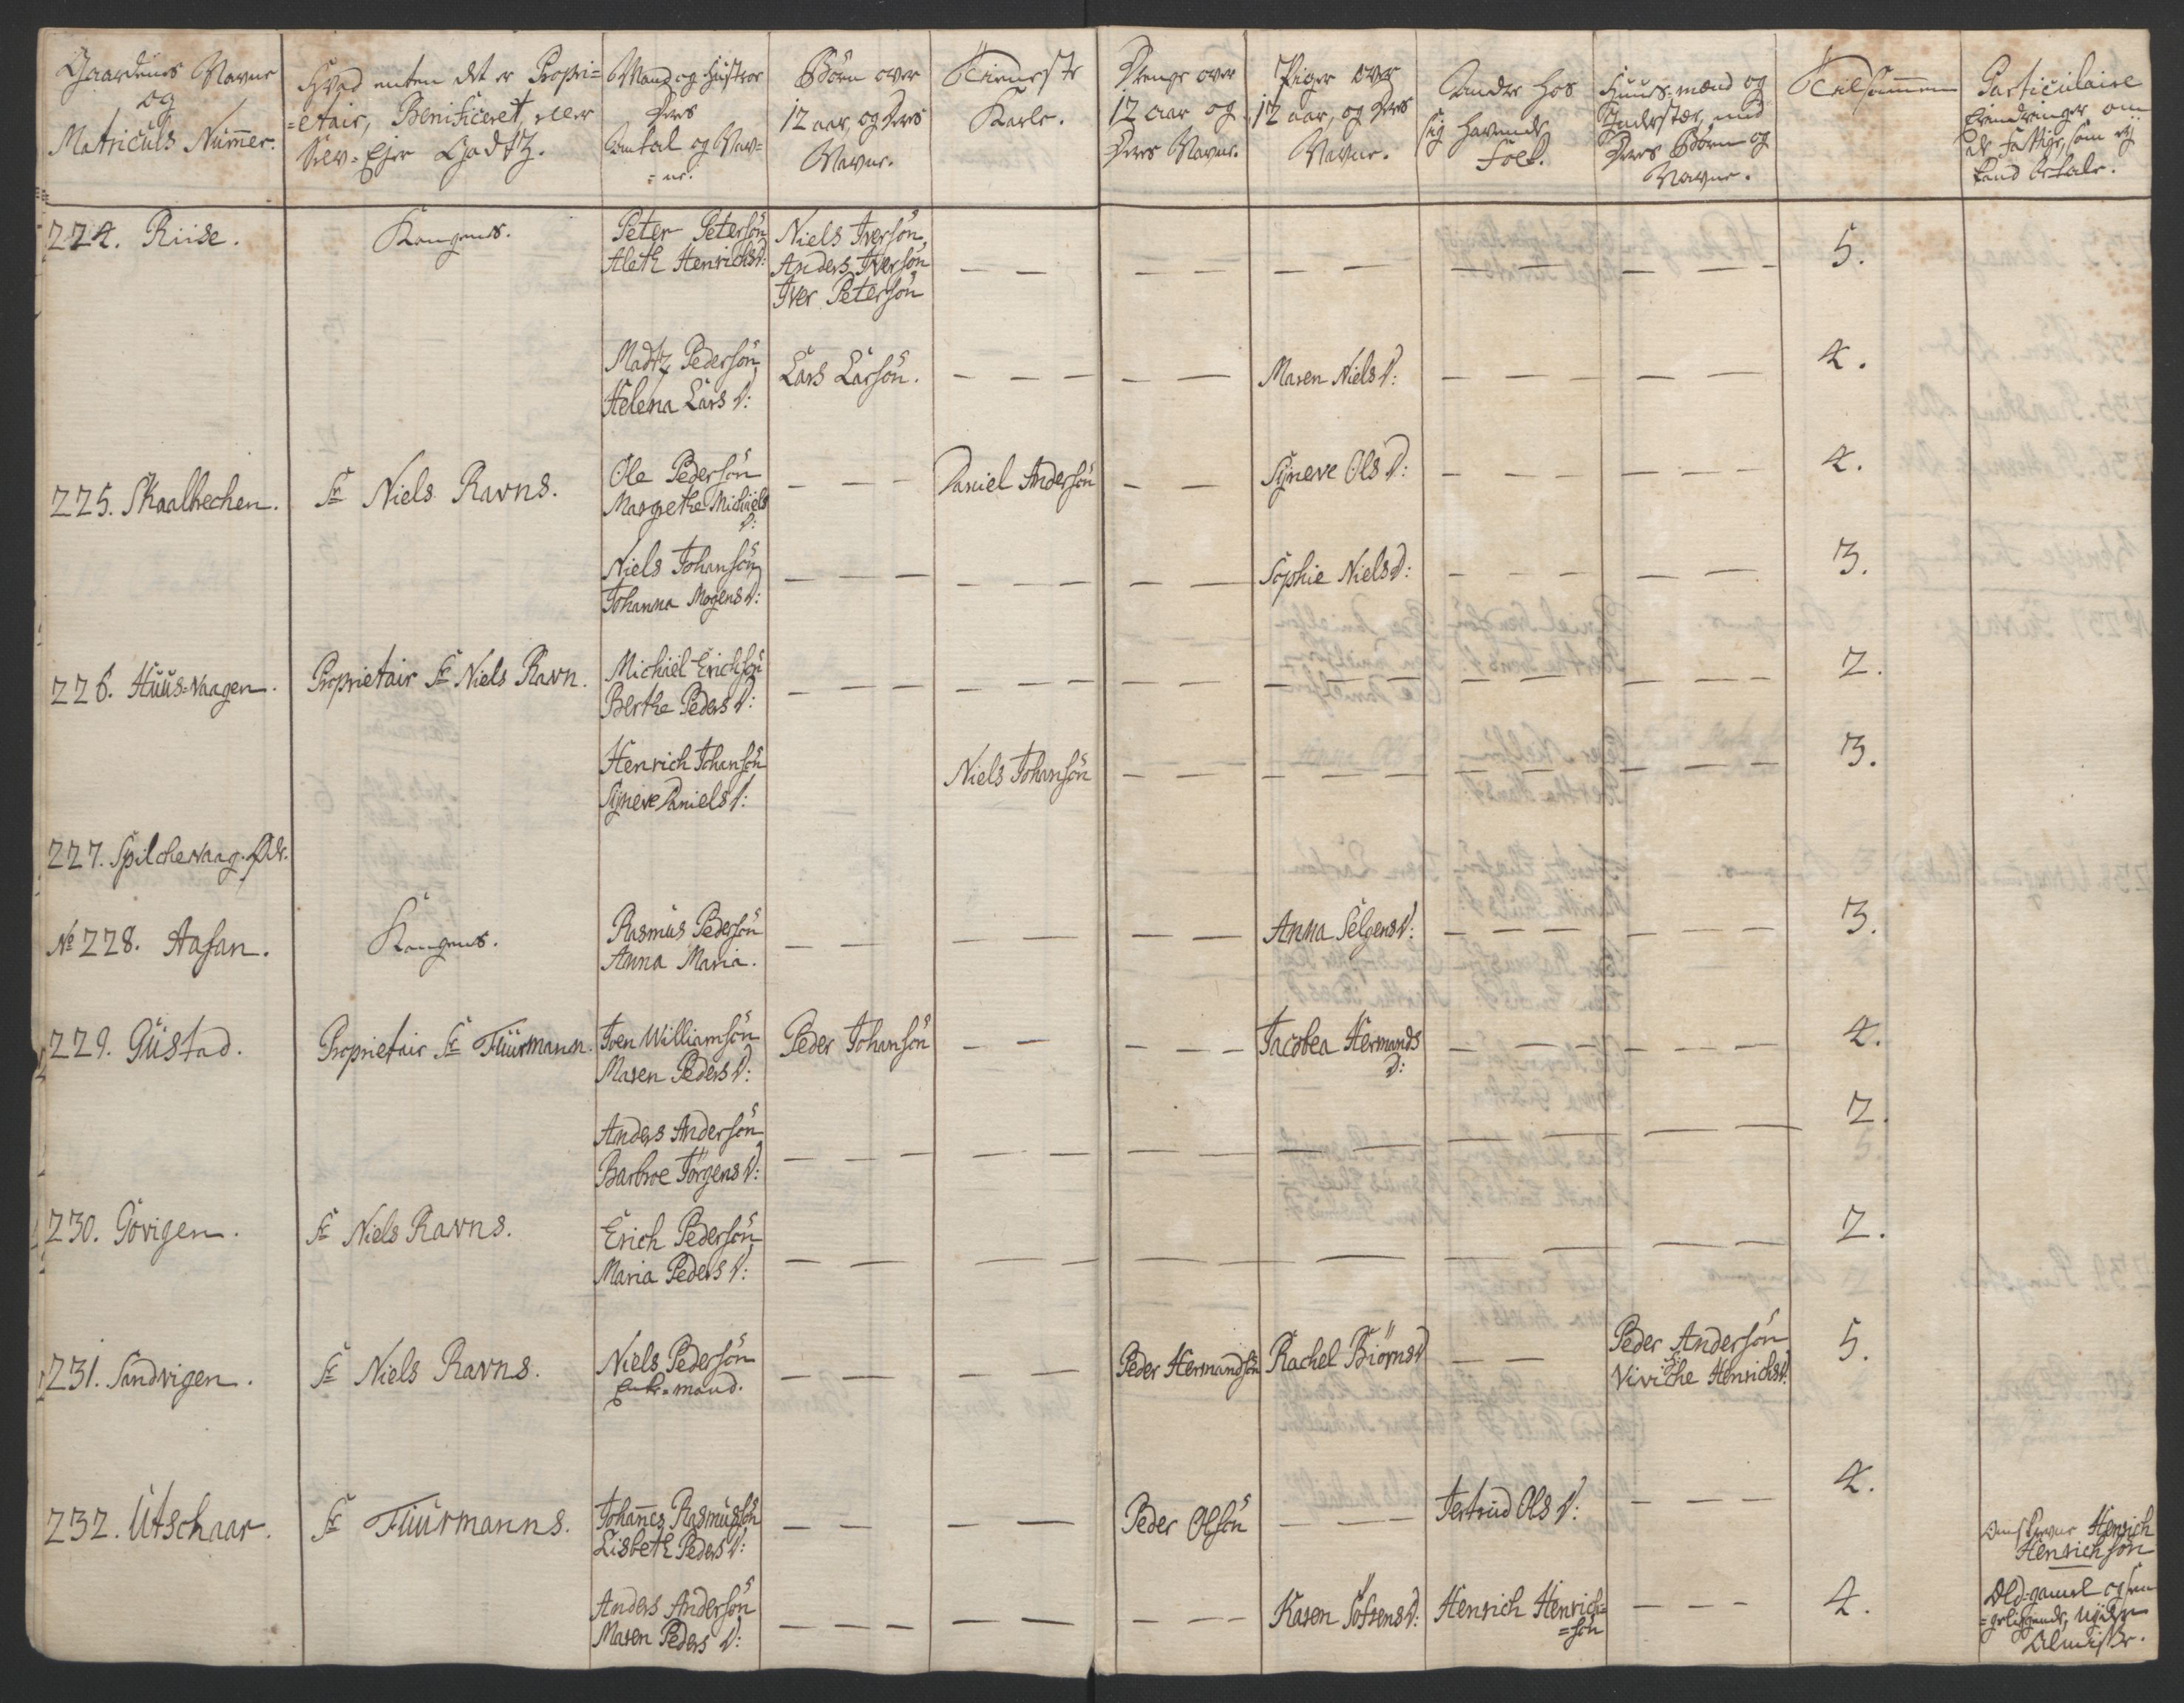 Gaardenes Navne
og
Matriculs Nummer.
Hvad enten det er Propri=
=etair, Benificeret, eller
Selv-Ejer Godtz.
Mand og Hustroe
Deres
Antal og Nav=
=ne.
Børn over
12 aar, og Deres
Navne.
Tieneste
Karle.
Drenge over
12 aar og
Deres Navne.
Piger over
12 aar, og Deres
Navne.
Andre hos
sig havende
Folk.
Huus-mænd og
Inderster, med
Deres Børn og
Navne.
Tilsammen
Particulaire
om
de fattige, som ej
kand betale.
224. Riise.
Kongens.
Peter Petersön
Aleth Henrichsd:
Niels Iversön,
Anders Iversön
Iver Petersön
5.
Madtz Pedersön
Helena Lars D:
Lars Larsön.
Maren Niels D:
4.
225. Skaalbechen.
Sr Niels Ravns.
Ole Pedersön
Margrethe Michiels
D:
Daniel Andersön
Sÿneve Ols D:
4.
Niels Johansön
Johanna Mogens D:
Sophie Niels D:
3.
226. Huus-vaagen.
Proprietair Sr Niels Ravn.
Michiel Erichsön
Berthe Peders D:
2.
Henrich Johansön
Sÿneve Daniels D:
Niels Johansön
3.
227. Spilchevaag. Øde.
No 228. Aasan.
Kongens.
Rasmus Pedersön
Anna Maria.
Anna Selgens D:
3.
229. Gustad.
Proprietair Sr Fuurmann.
Iven Williamsön
Maren Peders D:
Peder Johansön
Jacobea Hermands
D:
4.
Anders Andersön
Barbroe Jörgens D:
2.
230. Görigen.
Sr Niels Ravns.
Erich Pedersön
Maria Peders D:
2.
231. Sandvigen.
Sr Niels Ravns.
Niels Pedersön
Enke-mand.
Peder Hermandsön
Rachel Biörnsd
Peder Andersön
Viviche Henrichsd:
5.
232. Utschaar.
Sr Fuurmanns.
Johannes Rasmusön
Lisbeth Peders D:
Peder Olsön
Jertrud Ols D:
4.
Henrich
Henrichsön
Anders Andersön
Maren Peders D:
Karen Töfsens D:
Henrich Henrich=
=sön
4.
Old-gamel og sen
=geliggende, nyder
Almisse.